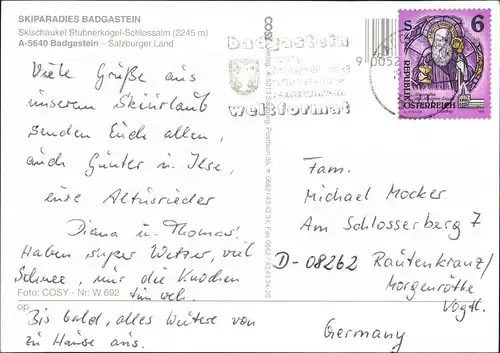 SKIPARADIES BADGASTEIN
Skischaukel Stubnerkogel-Schlossalm (2245 m)
A-5640 Badgastein – Salzburger Land
Viele Grüße aus
unserem Skiurlaub
senden Euch allen,
auch Günter u. Ilse,
eure Altusrieder
Diana u. Thomas!
Haben super Wetter, viel
Schnee, nur die Knochen
tun weh.
Foto: COSY - Nr: W 692
Bis bald, alles Weitere von
zu Hause aus.
COSY
badgastein
weltformat
6
S
REPUBLIK
ÖSTERREICH
Fam.
Michael Mocker
Am Schlosserberg 7
D-08262 Rautenkranz/
Morgenröthe
Vogtl.
Germany